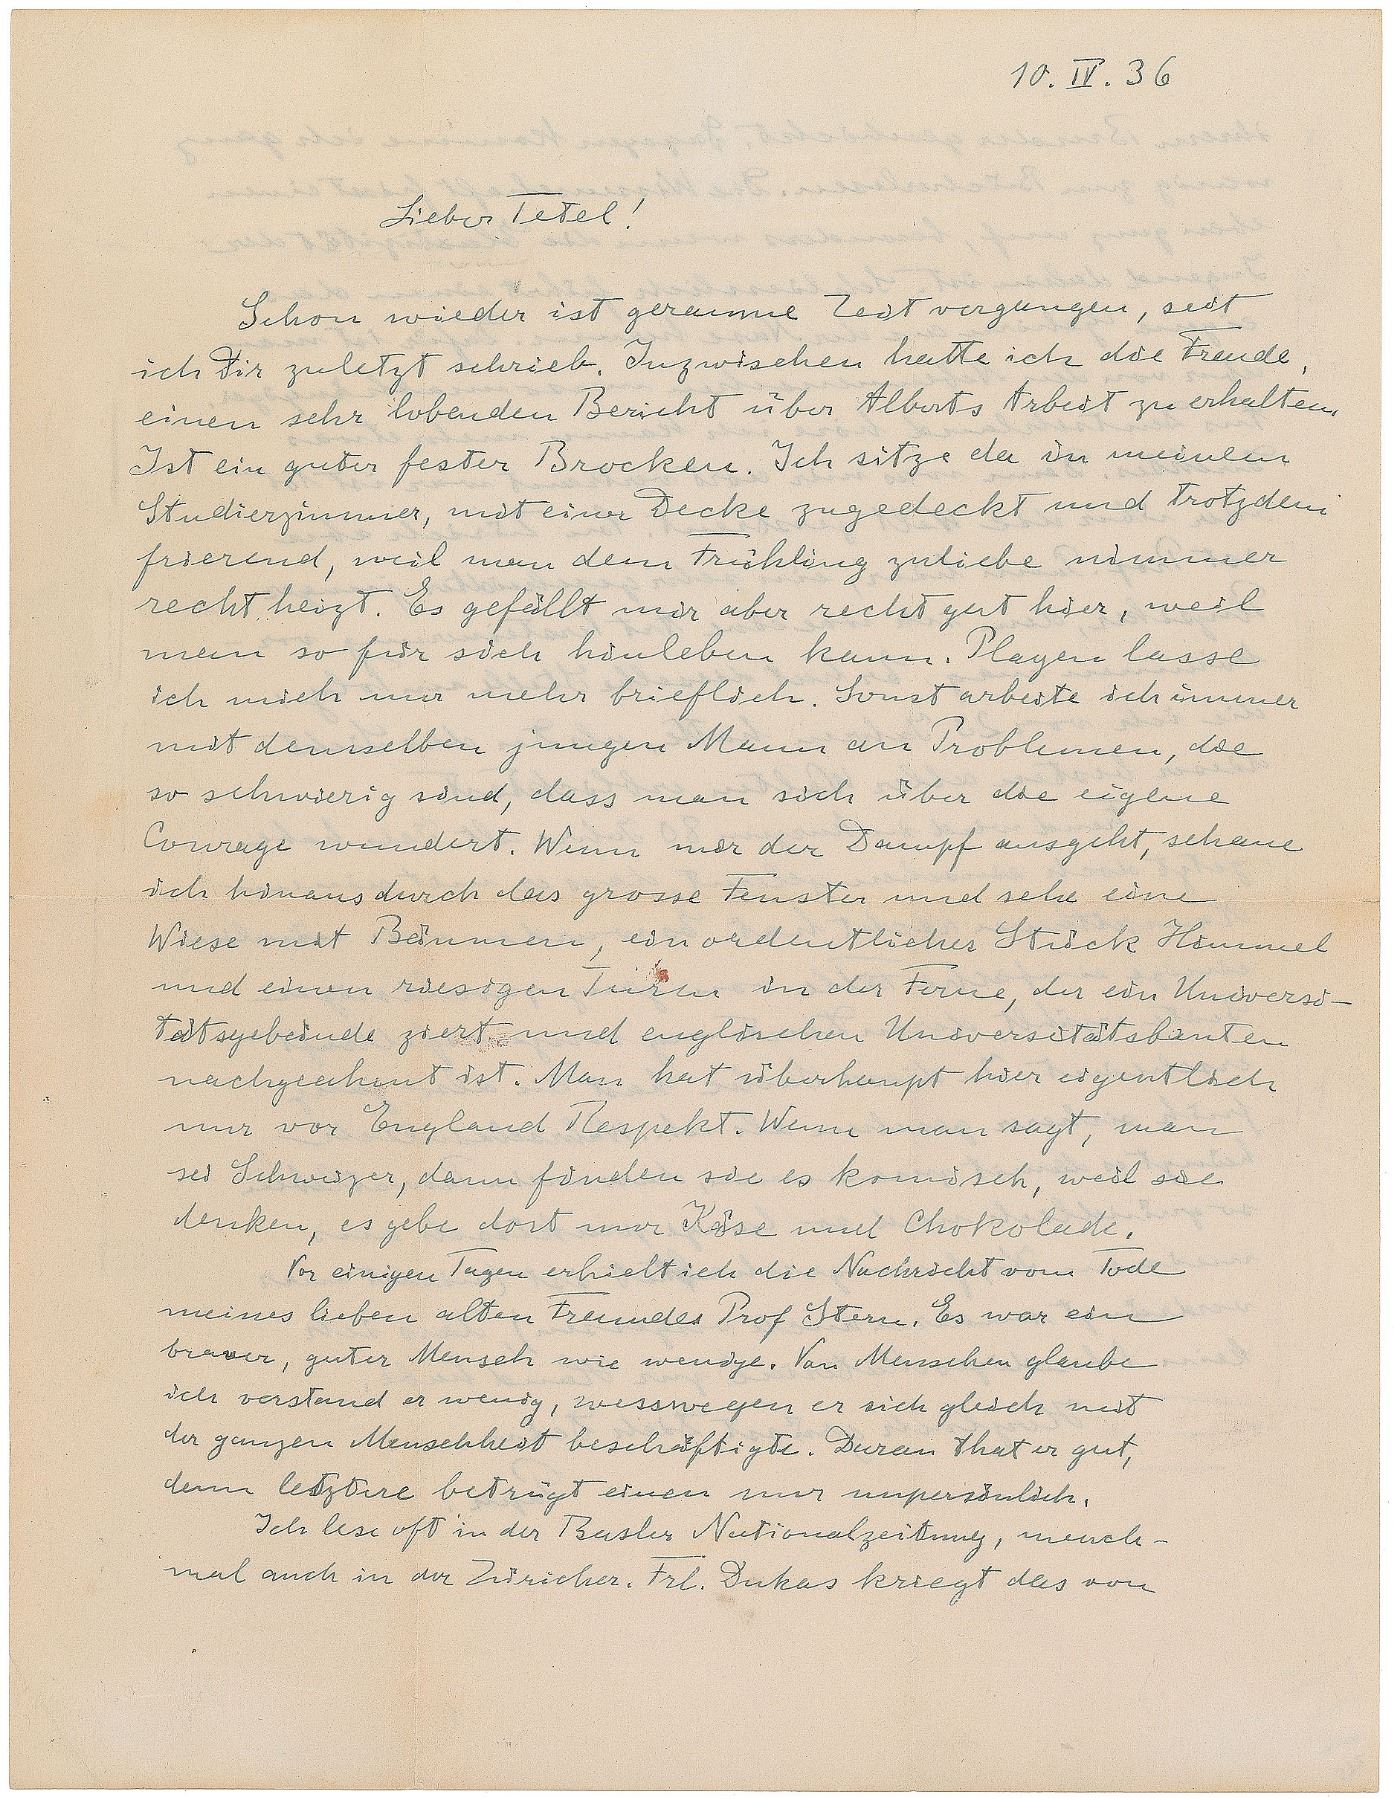 10. IV. 36
Lieber Tetel!
Schon wieder ist geraume Zeit vergangen, seit
ich Dir zuletzt schrieb. Inzwischen hatte ich die Freude,
einen sehr lobenden Bericht über Alberts Arbeit zu erhalten.
Ist ein guter fester Brocken. Ich sitze da in meinem
Studierzimmer, mit einer Decke zugedeckt und trotzdem
frierend, weil man dem Frühling zuliebe nimmer
recht heizt. Es gefällt mir aber recht gut hier, weil
man so für sich hinleben kann. Plagen lasse
ich mich nur mehr brieflich. Sonst arbeite ich immer
mit demselben jungen Mann an Problemen, die
so schwierig sind, dass man sich über die eigene
Courage wundert. Wenn mir der Dampf ausgeht, schaue
ich hinaus durch das grosse Fenster und sehe eine
Wiese mit Bäumen, ein ordentliches Stück Himmel
und einen riesigen Turm in der Ferne, der ein Universi-
tätsgebäude ziert und englischen Universitätsbauten
nachgeahmt ist. Man hat überhaupt hier eigentlich
nur vor England Respekt. Wenn man sagt, man
sei Schweizer, dann finden sie es komisch, weil sie
denken, es gebe dort nur Käse und Chokolade.
Vor einigen Tagen erhielt ich die Nachricht vom Tode
meines lieben alten Freundes Prof Stern. Es war ein
braver, guter Mensch wie wenige. Von Menschen glaube
ich verstand er wenig, wesswegen er sich gleich mit
der ganzen Menschheit beschäftigte. Daran that er gut,
denn letztere betrügt einen nur unpersönlich.
Ich lese oft in der Basler Nationalzeitung, manch-
mal auch in der Züricher. Frl. Dukas kriegt das von